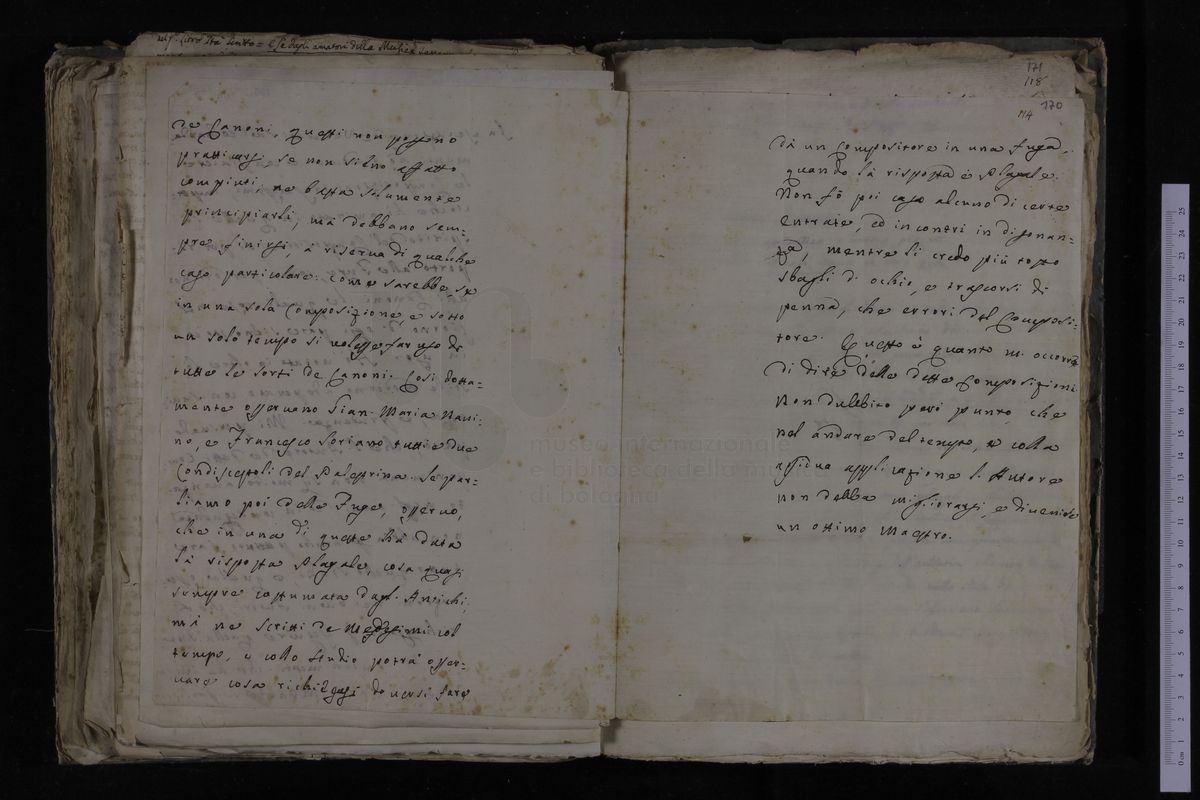 nell. libro stà scritto = e se dagli amatori della Musica
de Canoni, questi non possono
pratticarsi se non siano affatto
compiuti, ne basta solamente
principiarli, mà debbano sem=
pre finirsi, à riserva di qualche
caso particolare. Come sarebbe se
in una sola Composizione, e sotto
un solo tempo si volesse far uso di
tutte le sorti de Canoni. Così dotta=
mente osservano Gian. Maria Nani=
no, e Francesco Soriano tutti e due
Condiscepoli del Palestrina. Se par=
liamo poi delle Fuge, osservo,
che in una di queste hà data
là risposta Plagale, cosa quasi
sempre costumata dagl. Antichi,
mà ne scritti de Medesimi col
tempo, e collo studio potrà osser=
vare cosa richieggasi doversi fare
171
118
170
114
dà un Compositore in una fuga,
quando là risposta è Plagale.
Non fò poi caso alcuno di certe
entrate, ed incontri in disonan=
za, mentre li credo più tosto
sbagli di occhio, e trascorsi di
penna, che errori del Composi=
tore. Questo è quanto m. occorre
di dire delle dette Composizioni
Non dubbito però punto, che
nel andare del tempo, e colla
assidua applicazione l. Autore
non debba migliorarsi, e divenire
un ottimo Maestro.
museo internazionale
e biblioteca della musica
di bologna